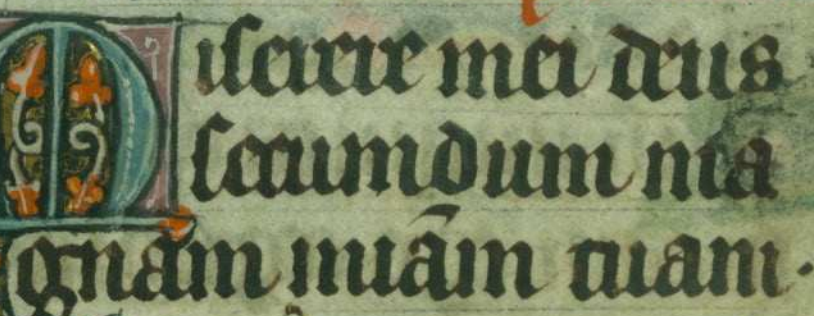 Miſerere mei deus
ſecumdum ma
gnam miām tuam·